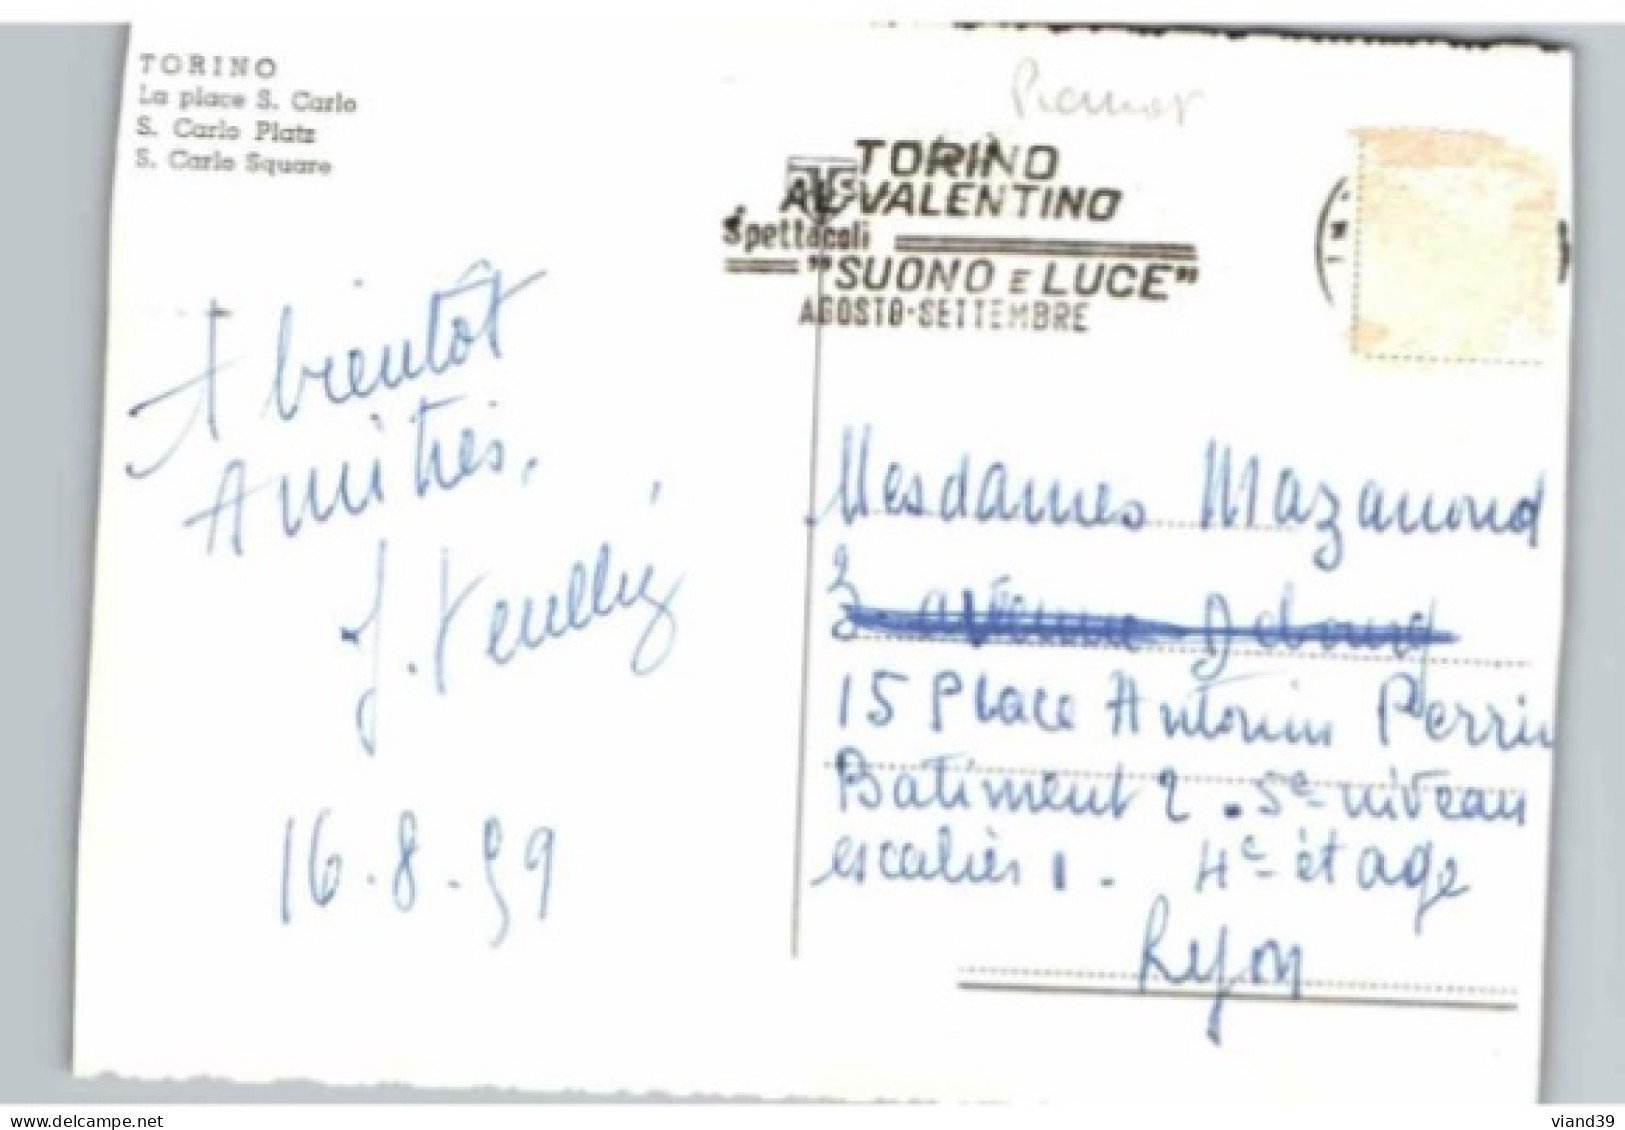 TORINO
La place S. Carlo
S. Carlo Platz
S. Carlo Square
TORINO
AL VALENTINO
Spettacoli
"SUONO E LUCE"
AGOSTO-SETTEMBRE
A bientôt
Amitiés.
J.
16.8.59
Mesdames Mazamond
3 avenue
15 Place Antonin Perrin
Batiment 2. 5e niveau
escaliers 1. 4e étage
Lyon
viand39